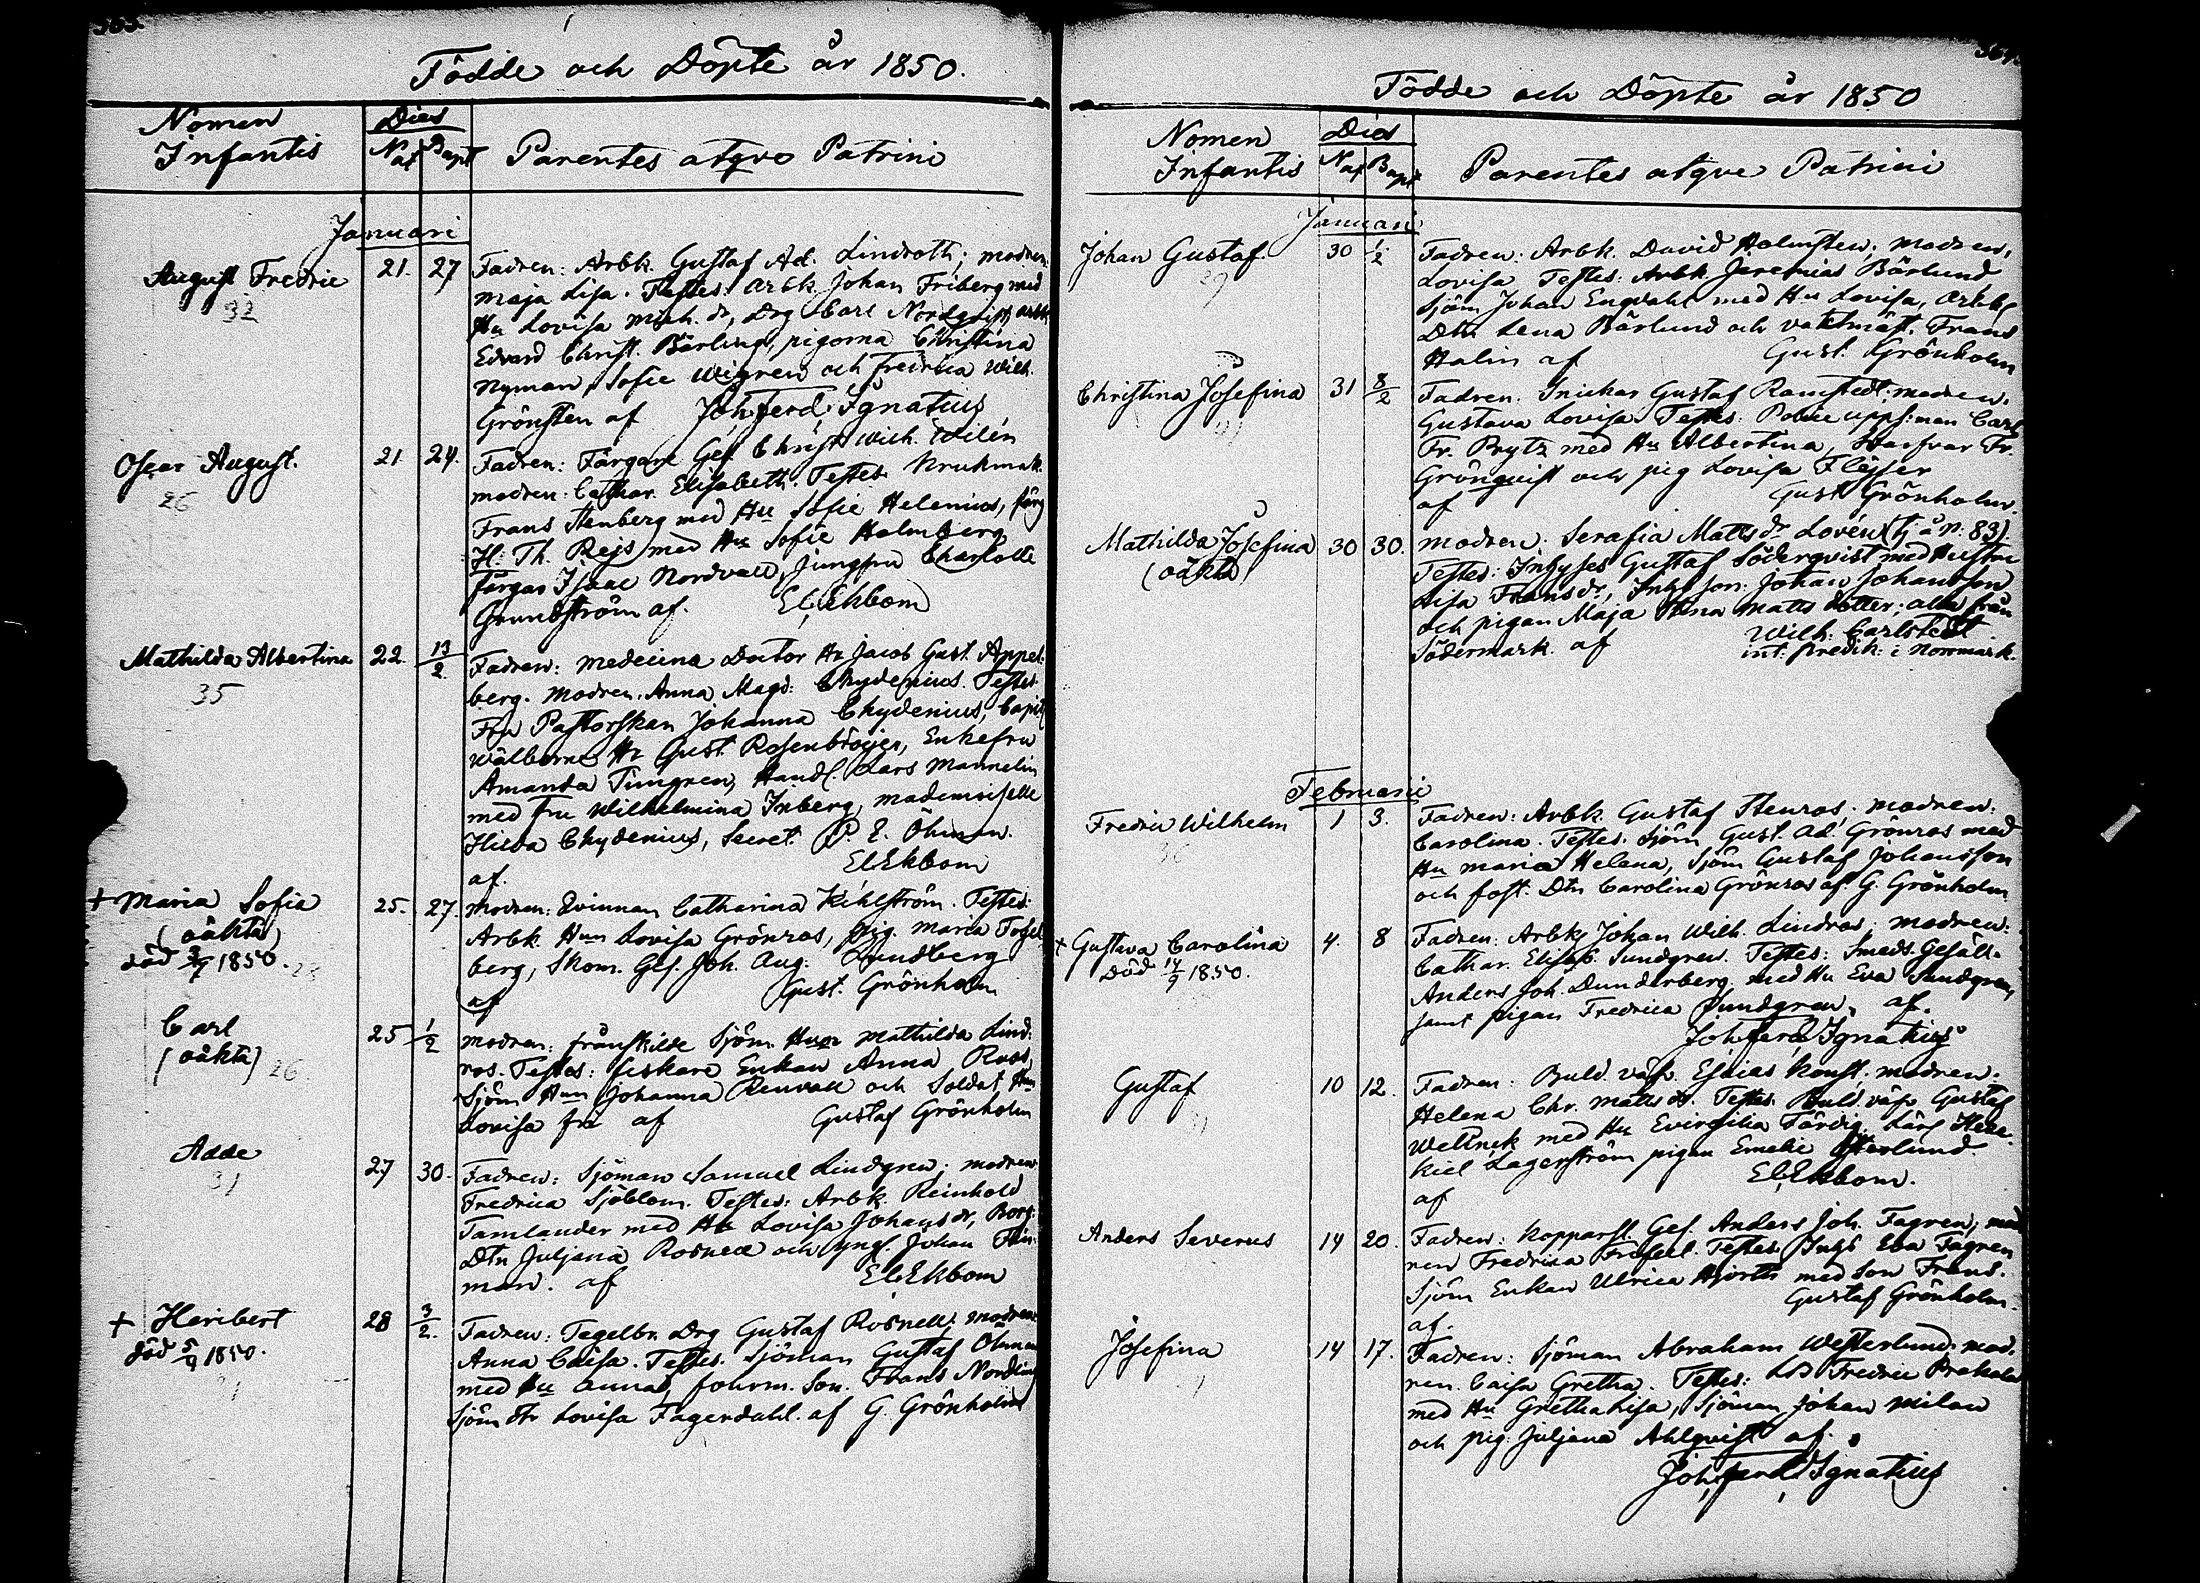 Födde och Döpte år 1850.
Nomen
Infantis
Dies
Nat Bapt
Parentes atqve Patrini
Januari
August Fredric 21. 27 Fadren: Arbk. Gustaf Ad. Lindroth; modren
32
Maja Lisa. Testes: Arbk Johan Friberg med
Hu Lovisa Mich. dr, Drg Carl Nordqvist, arbk
Edvard Christ. Bärlund, pigorna Christina
Nyman, Sofie Wigren och Fredrica Wilh.
Grönsten af Joh. Ferd Ignatius
Oscar August. 21 24. Fadren: Färgare Ges. Christ Wilh. Wilén
26
modren: Cathar. Elisabeth. Testes Krukmak.
Frans Stenberg med Hu Sofie Helenius, färg
H: Th. Rejs med Hu Sofie Holmberg
färgar Isaac Nordvall, Jungfru Charlotte
Grundström af. El. Ekbom
Mathilda Albertina 22. 13/2 Fadren: Medecina Doctor Hr Jacob Gust. Appel-
35
berg. Modren. Anna Magd: Chydenius. Testes
Fru Pastorskan Johanna Chydenius, Capit
wälborne Hr Gust. Rosenbröijer, Enkefru
Amanda Timgren, Handl. Lars Mannelin
med fru Wilhelmina Inberg, mademoiselle
Hilda Chydenius, Secret. P. E. Öhman.
af. El Ekbom
+ Maria Sofia 25. 27. Modren: Qvinnan Catharina Kihlström. Testes:
(oäkta)
Arbk Hun Lovisa Grönroos, pig. Maria Fogel
död 1850.
berg, Skom. Ges. Joh. Aug. Lundberg
af Gust. Grönholm
Carl 25 1/2 Modren: frånskilde Sjöm. Hun Mathilda Lind-
(oäkta) 26
ros. Testes: fiskare Enkan Anna Roos,
Sjöm Hun Johanna Renvall och Soldat Hun
Lovisa fri af Gustaf Grönholm
Adde 27 30. Fadren: Sjöman Samuel Lindgren; modren
31
Fredrica Sjöblom. Testes: Arbk. Reinhold
Tamlander med Hu Lovisa Johansdr, Borg:
Dtn Juljana Rosnell och yngl. Johan
man. af El Ekbom
+ Heribert 28 3/2. Fadren: Tegelbr. Drg Gustaf Rosnell. modren
död 5/9 1850.
Anna Caisa. Testes. Sjöman Gustaf Öhman
med Hu Anna, fohrm. Son. Frans Nordling
Sjöm dtr Lovisa Fagerdahl. af G. Grönholm
Födde och Döpte år 1850
Nomen
Infantis
Dies
Nat Bapt
Parentes atqve Patrini
Januari
Johan Gustaf. 30 1/2 Fadren: Arbk. David Holmsten; modren,
Lovisa Testes: Arbk Jeremias Bärlund
Sjöm Johan Engdahl med Hu Lovisa, arbk
Dtn Lena Bärlund och vaktmäst. Frans
Halin af Gust. Grönholm
Christina Josefina 31 8/2 Fadren. Snickar Gustaf Ramstedt; modren.
Gustava Lovisa. Testes: Police upps:man Carl
Fr. Prytz med Hu Albertina, Fr.
Grönqvist och pig Lovisa Fleijser
af Gust Grönholm.
Mathilda Josefina 30 30. modren: Serafia Mattsdr Lovén
(oäkta)
Testes: Inhyses Gustaf Söderqvist med hustru
Lisa Fransdr, Inhysson: Johan Johansson
och pigan Maja Stina Matts dotter; alla från
Södermark. af Wilh: Carlstedt
int: predik: i Norrmark.
Februarii
Fredric Wilhelm 1 3. Fadren: Arbk. Gustaf Stenros; modren:
Carolina. Testes. Sjöm Gust. Ad. Grönros med
Hu Maria Helena, Sjöm Gustaf Johansson
och fost. Dtn Carolina Grönros af. G. Grönholm
+ Gustava Carolina 4. 8 Fadren: Arbk Johan Wilh. Lindros; modren:
Död 14/9 1850.
Cathar. Elisab. Sundgren. Testes: Smeds Gesäll.
Anders Joh. Dunderberg. med Hu Eva Sundgren,
samt pigan Fredrica Sundgren. af.
Joh ferd. Ignatius
Gustaf 10 12. Fadren: Buld. väfv. Esaias Konst. modren.
Helena Chr. Mattsdr. Testes. Buld. väfv Gustaf
Wellnek med Hu Evirgilia Färdig. Lärl Heze-
kiel Lagerström pigan Emelie Österlund.
af El Ekbom.
Anders Severus 14 20. Fadren: Kopparsl. Ges. Anders Joh. Fagren; mod
ren Fredrica Testes: Inhs Eva Fagren
Sjöm Enkan Ulrica Hjorth med Son Frans.
af. Gustaf Grönholm.
Josefina 14 17. Fadren: Sjöman Abraham Westerlund. mod.
ren. Caisa Gretha. Testes: Fredric
med Hu Gretha Lisa, Sjöman Johan Milan
och pig. Juljana Ahlqvist af.
Joh. ferd. Ignatius